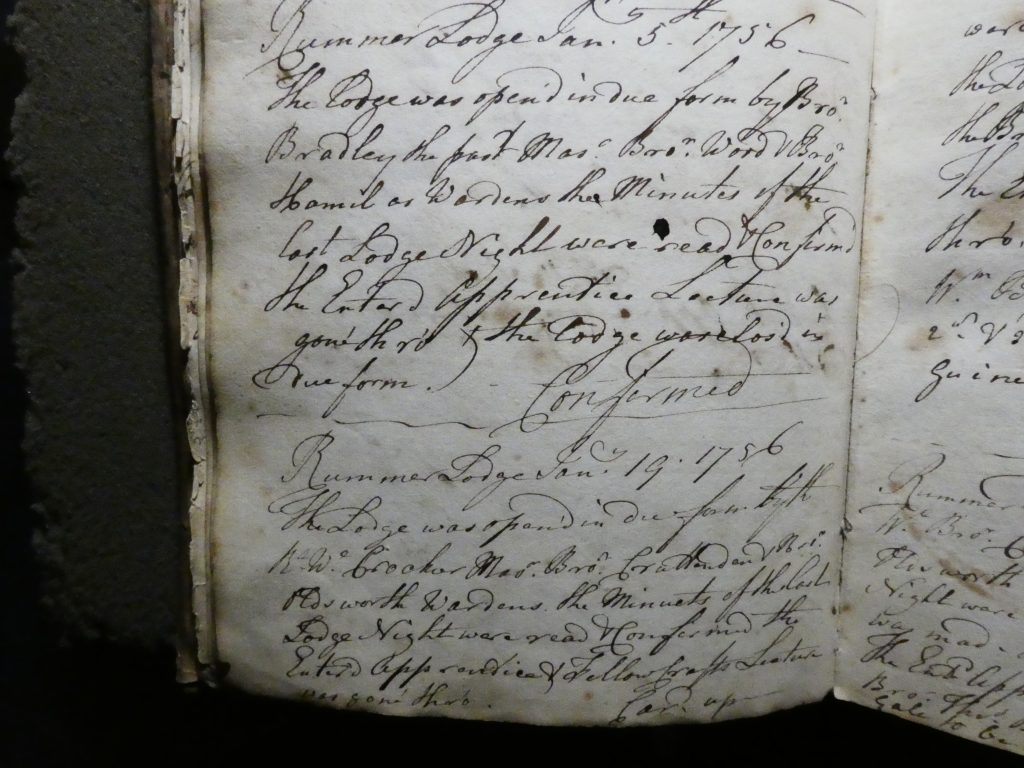 Rummer Lodge Jan.ʸ 5.th 1756
The Lodge was open'd in due form by Bro.r
Bradley the past Mas.r Bro.r Word & Bro.r
Hamil as Wardens the Minutes of the
last Lodge Night were read & Confirm'd
the Enter'd Apprentice Lecture was
gone thro' & the Lodge was Closd in
Due form.
Confirmed
Rummer Lodge Jan.y 19. 1756
The Lodge was opend in due form by th
R.t W. Crocker Mas.r Bro.r Crattenden & Bro.r
Oldsworth Wardens. the Minuets of the last
Lodge Night were read & Confirmed the
Enterd Apprentice & Fellow Crafts Lecture
was gone thro'.
Car.d up
were
the Lo
the Br
The En
thro'.
W.m
2
Guine
Rummer
W. Bro.r C
Oldsworth
Night were
was mad
The Ent.d App
Bro.r
to be